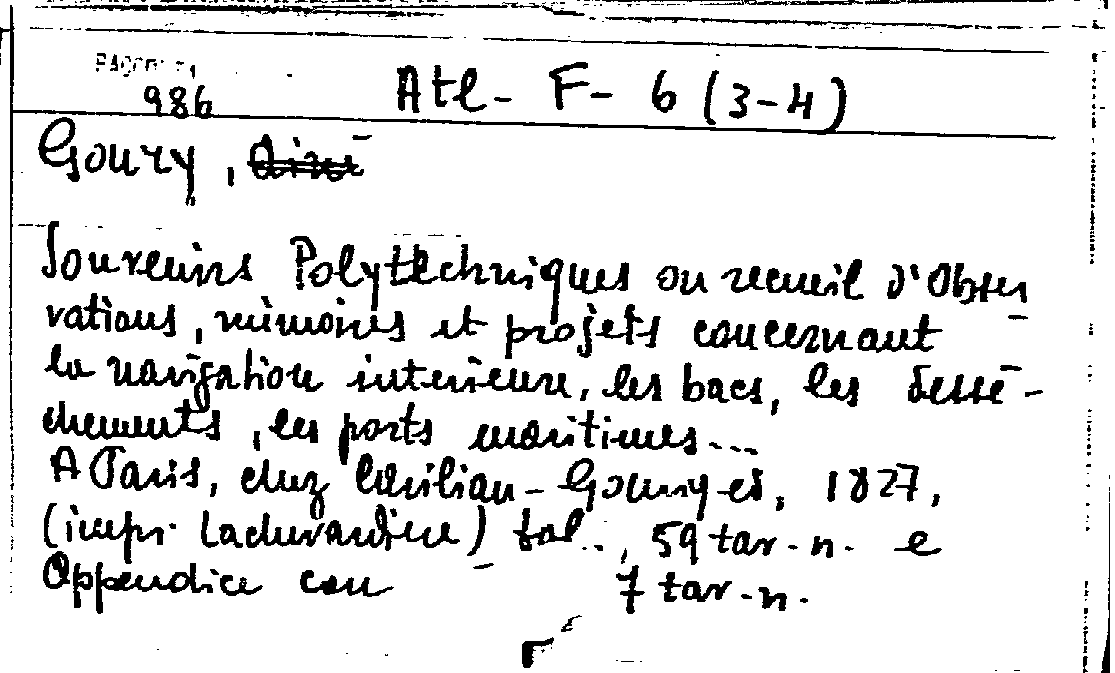 986 Atl- F- 6 (3-4)
Goury, Ainé
Souvenirs Polytechniques ou recueil d'Obser
vations, mémoires et projets concernant
la navigation intérieure, les bacs, les dessé-
chements, les ports maritimes...
A Paris, chez Carilian-Goeury ed, 1827,
(impr. Lachevardiere) fol.., 59 tav.n. e
Appendice con 7 tav.n.